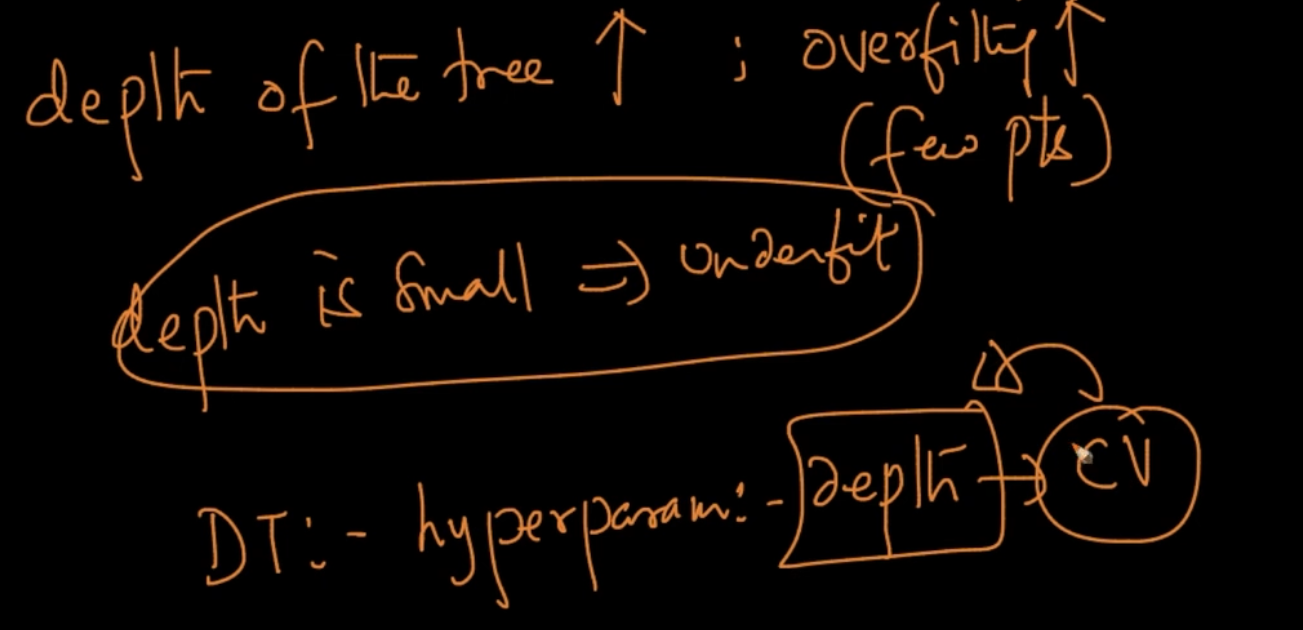 depth of the tree ↑ ; overfitting ↑
(few pts)
depth is small ⇒ underfit
DT:- hyperparam:- depth → CV